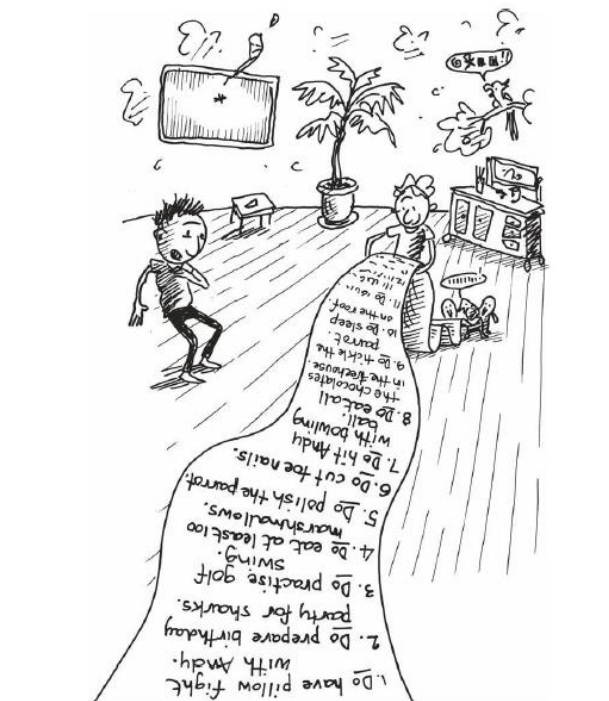 1. Do have pillow fight
with Andy.
2. Do prepare birthday
party for sharks.
3. Do practise golf
swing.
4. Do eat at least 100
marshmallows.
5. Do polish the parrot.
6. Do cut toe nails.
7. Do hit Andy
with bowling
ball.
8. Do eat all
the chocolates
in the treehouse.
9. Do tickle the
parrot.
10. Do sleep
on the roof.
11. Do